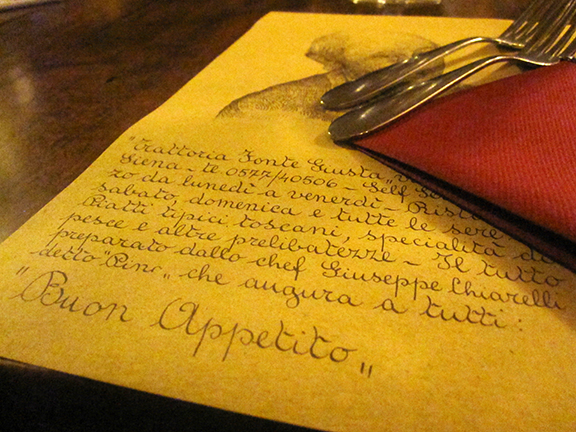 "Trattoria Fonte Giusta„
Siena - te 0577/40506 - Self
ro da lunedì a venerdì - Risto
sabato, domenica e tutte le sere
Piatti tipici toscani, specialità di
pesce e altre prelibatezze - Il tutto
preparato dallo chef Giuseppe Chiarelli
detto "Pino„ che augura a tutti:
"Buon Appetito„